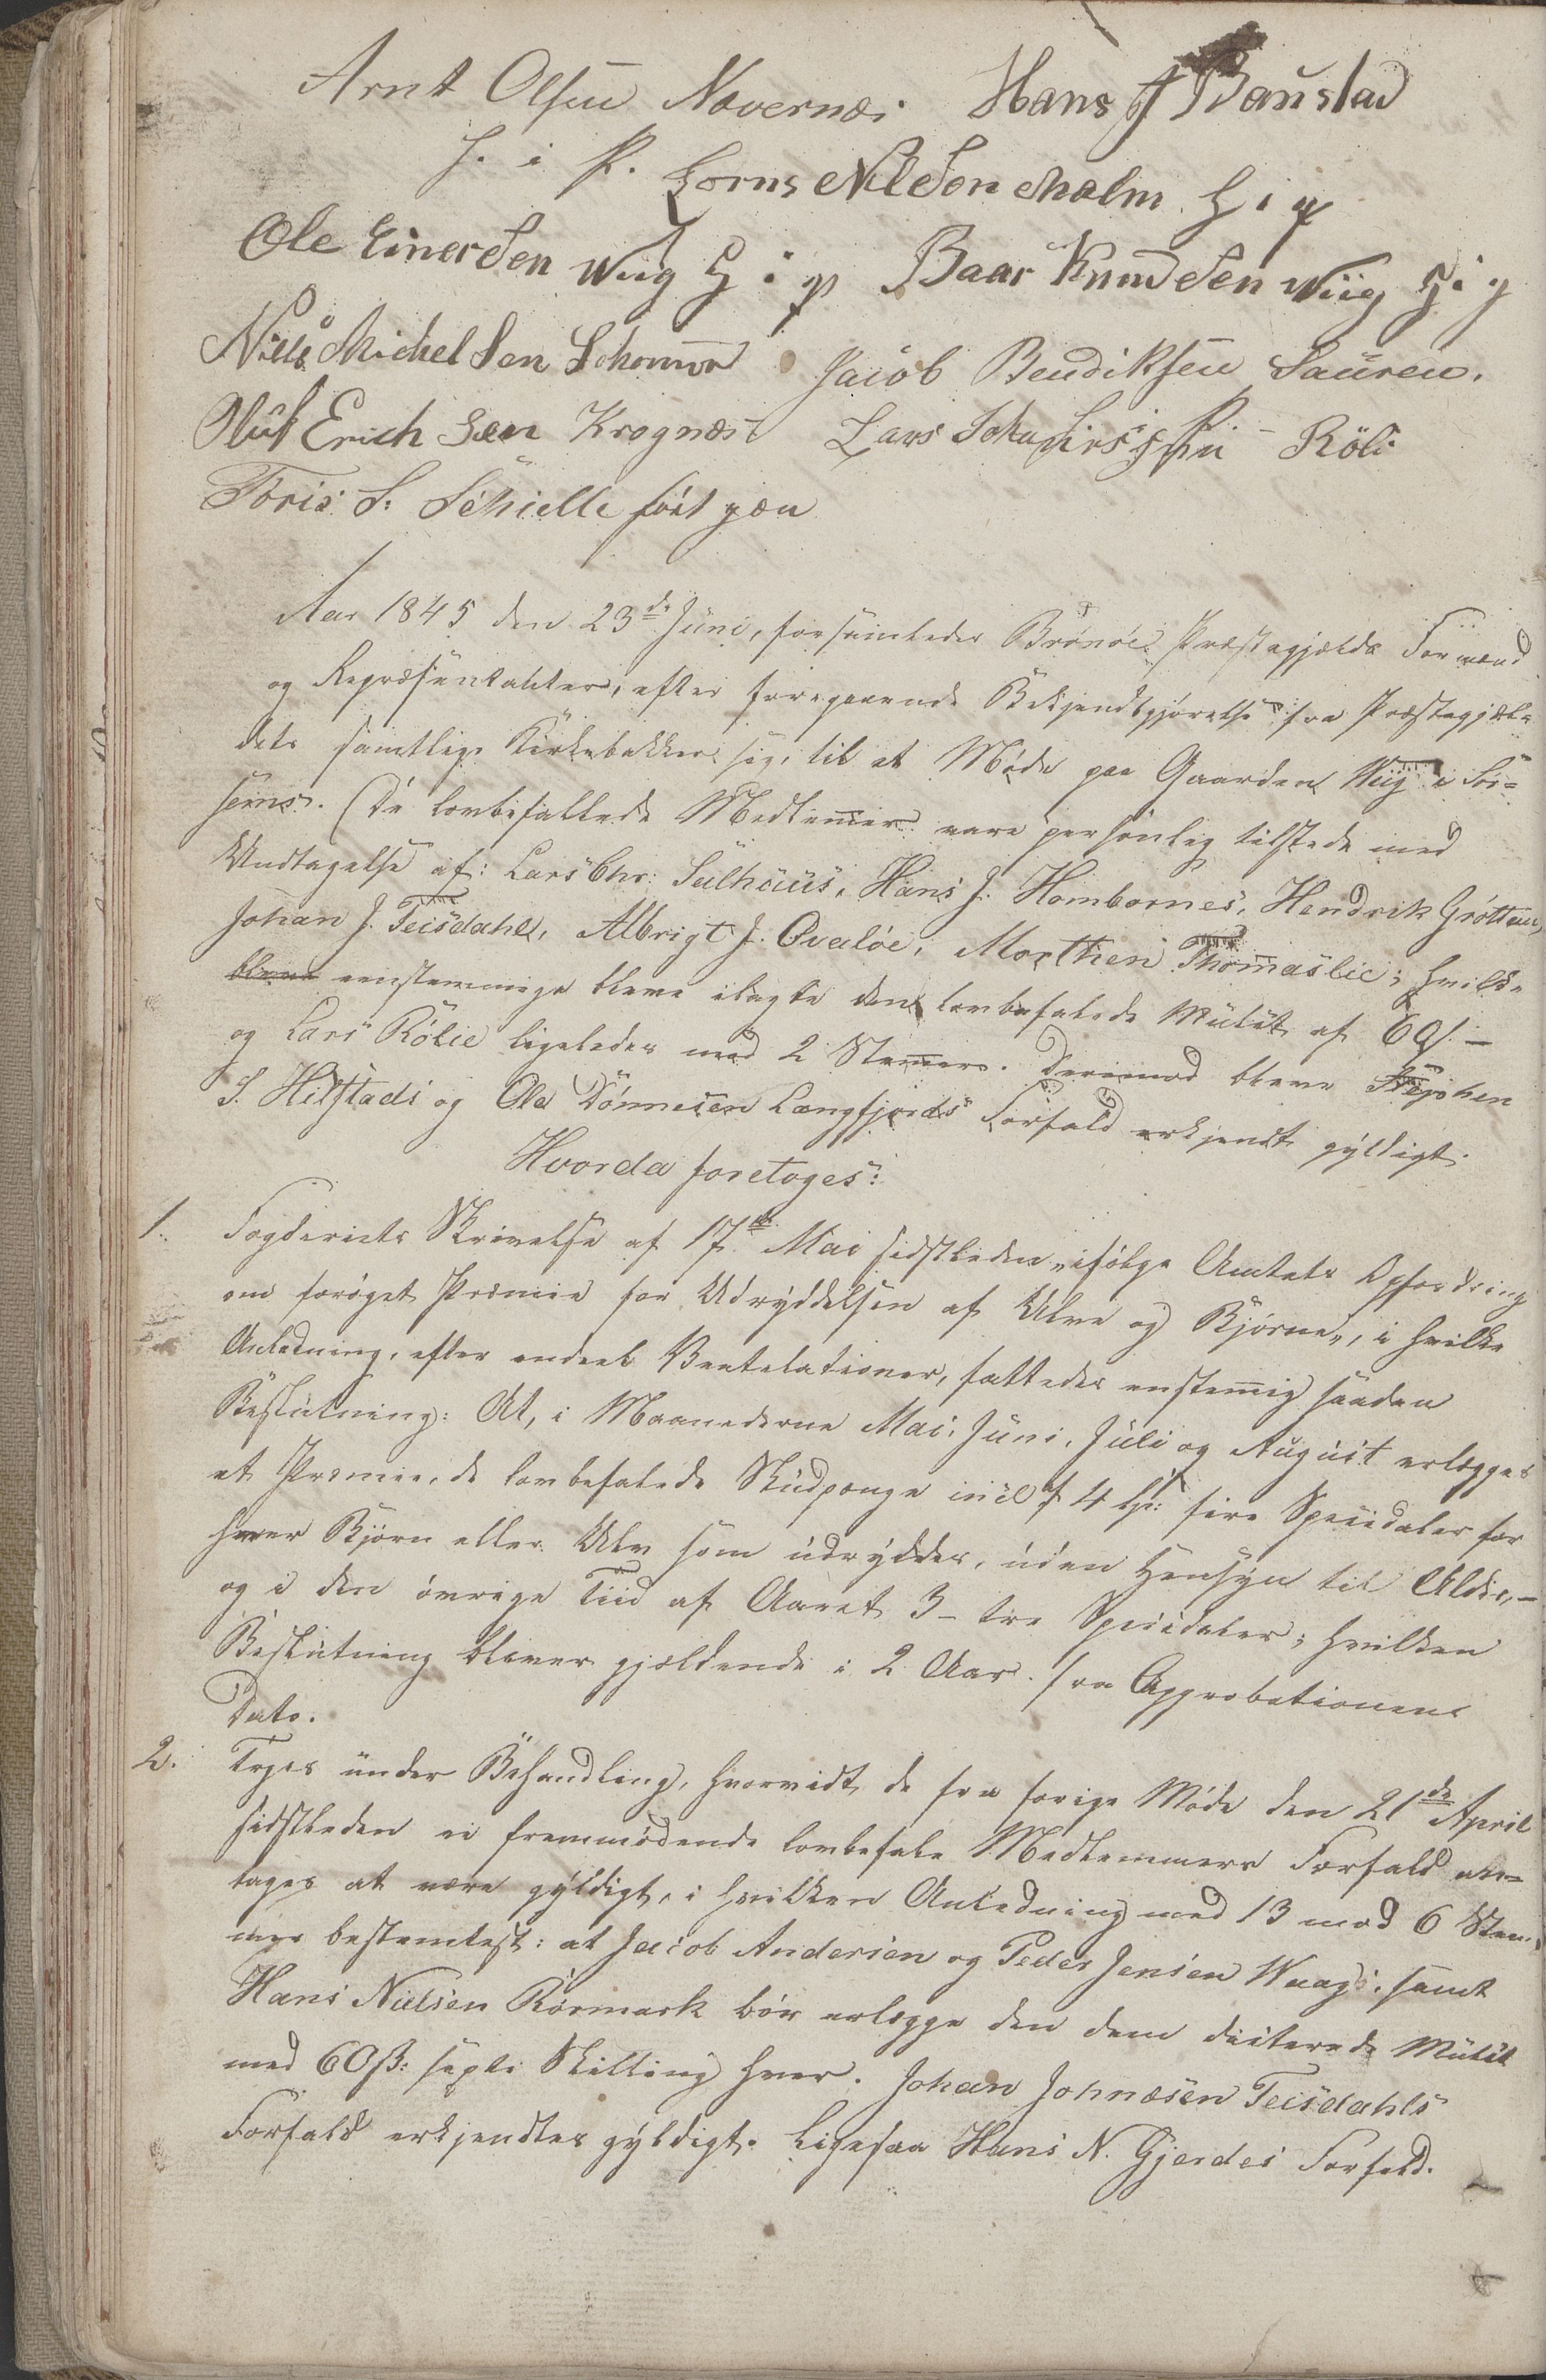 Arnt Olsen Navernæs Hans J Baustad
h. i P. Lorns Nilsen Holm H i P
Ole Einersen Wiig H i P Baar Knudsen Wiig H i P
Nills Michelsen Schomoe Jacob Bendiksen Sausen.
Oluf Erichsen Krognæs Lars Johannessen Röli
Toris S. Schielle fört pæn
Aar 1845 den 23de Juni, forsamledes Brönöe Præstegjælds Formænd
og Repræsentanter, efter foregaaende Bekjendtgjörelse fra Præstegjæl-
dets samtlige Kirkebakker sig, til et Möde paa Gaarden Wiig i Sör=
hems. (De lovbefallede Medlemer vare personlig tilstede med
Undtagelse af: Lars Chr: Sælhuus, Hans J. Hombornes, Hendrik Gröttem,
Johan J. Teisdahl, Albrigt J. Qvalöe, Morthen Thomaslie; hvilke
bleve eenstemmige bleve ilagte den lovbefalede Mulct af 60 ß. –
og Lars Rölie ligeledes med 2 Stemer. Derimod bleve Stephen
S. Hilstads og Ole Tönnesen Langfjords Forfald erkjendt gyldigt.
Hvorda foretoges:
1. Fogderiets Skrivelse af 17de Mai sidstleden, ifölge Amtets Opfordring
om foröget Præmie for Udryddelsen af Ulve og Björne, i hvilke
Anledning, efter endeel Ventelationer, fattedes enstemig saadan
Beslutning: At, i Maanederne Mai, Juni, Juli og August erlægges
et Præmie, de lovbefalede Skudpenge incl. af 4 Sp: fire Speciedaler for
hver Björn eller Ulv som udryddes, uden Hensyn til Alder, –
og i den övrige Tiid af Aaret 3 – tre Speciedaler; hvilken
Beslutning bliver gjældende i 2 Aar fra Approbationens
Dato.
2. Toges under Behandling, hvorvidt de fra forige Möde den 21de April
sidstleden ei fremmödende lovbefale Medlemmers Forfald an=
tages at være gyldigt, i hvilken Anledning med 13 mod 6 Stem-
mer bestemtest: at Jacob Andersen og Peder Jensen Waag, samt
Hans Nielsen Rörmark bör erlægge den dem dicterede Mulct
med 60 ß: sexti Skilling hver. Johan Johnæsen Teisdahls
Forfald erkjendtes gyldigt. Ligesaa Hans N. Gjerdes Forfald.